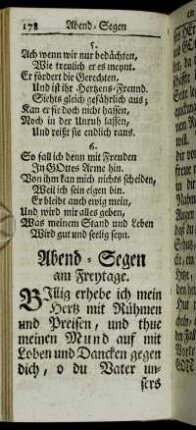 178 Abend-Segen
5.
Ach wenn wir nur bedächten,
Wie treulich er es meynt.
Er fördert die Gerechten,
Und ist ihr Hertzens-Freund.
Siehts gleich gefährlich aus;
Kan er sie doch nicht hassen,
Noch in der Unruh lassen,
Und reißt sie endlich raus.
6.
So fall ich denn mit Freuden
In GOttes Arme hin.
Von ihm kan mich nichts scheiden,
Weil ich sein eigen bin.
Er bleibt auch ewig mein,
Und wird mir alles geben,
Was meinem Stand und Leben
Wird gut und seelig seyn.
Abend-Segen
am Freytage.
BIllig erhebe ich mein
Hertz mit Rühmen
und Preisen, und thue
meinen Mund auf mit
Loben und Dancken gegen
dich, o du Vater un-
sers